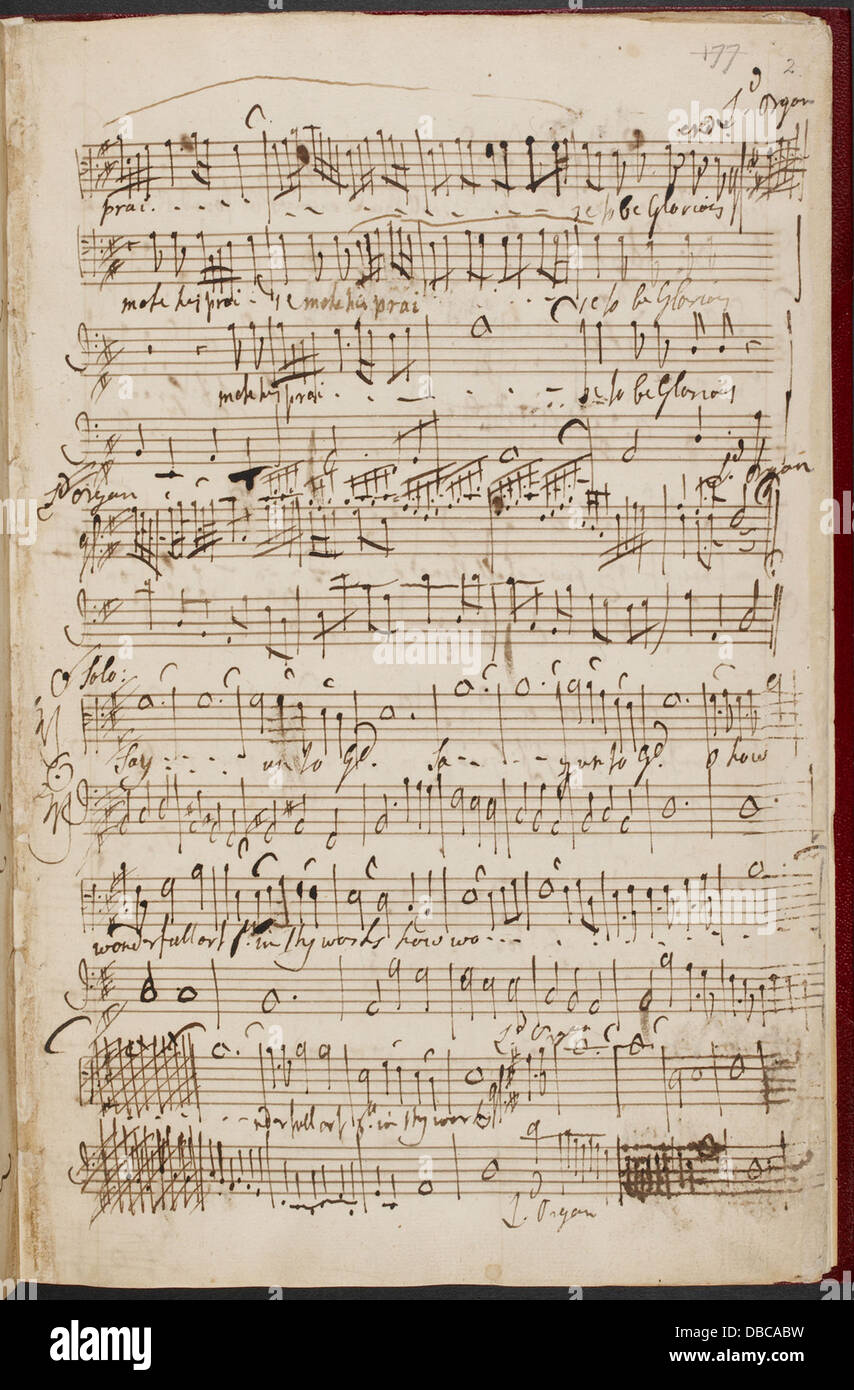 177 2
Ld Organ
prai. - - - se to be Glorious
make his prai - se make his prai - - se to be Glorious
make his prai. - - - se to be Glorious
Ld Organ
Organ
Solo:
Say - - - - unto Gd. Sa - - - - y unto Gd. O how
wonderfull art in thy works how wo - - -
Ld Organ
- - - nderfull art in thy works
Ld Organ
alamy
Image ID: DBCABW
www.alamy.com